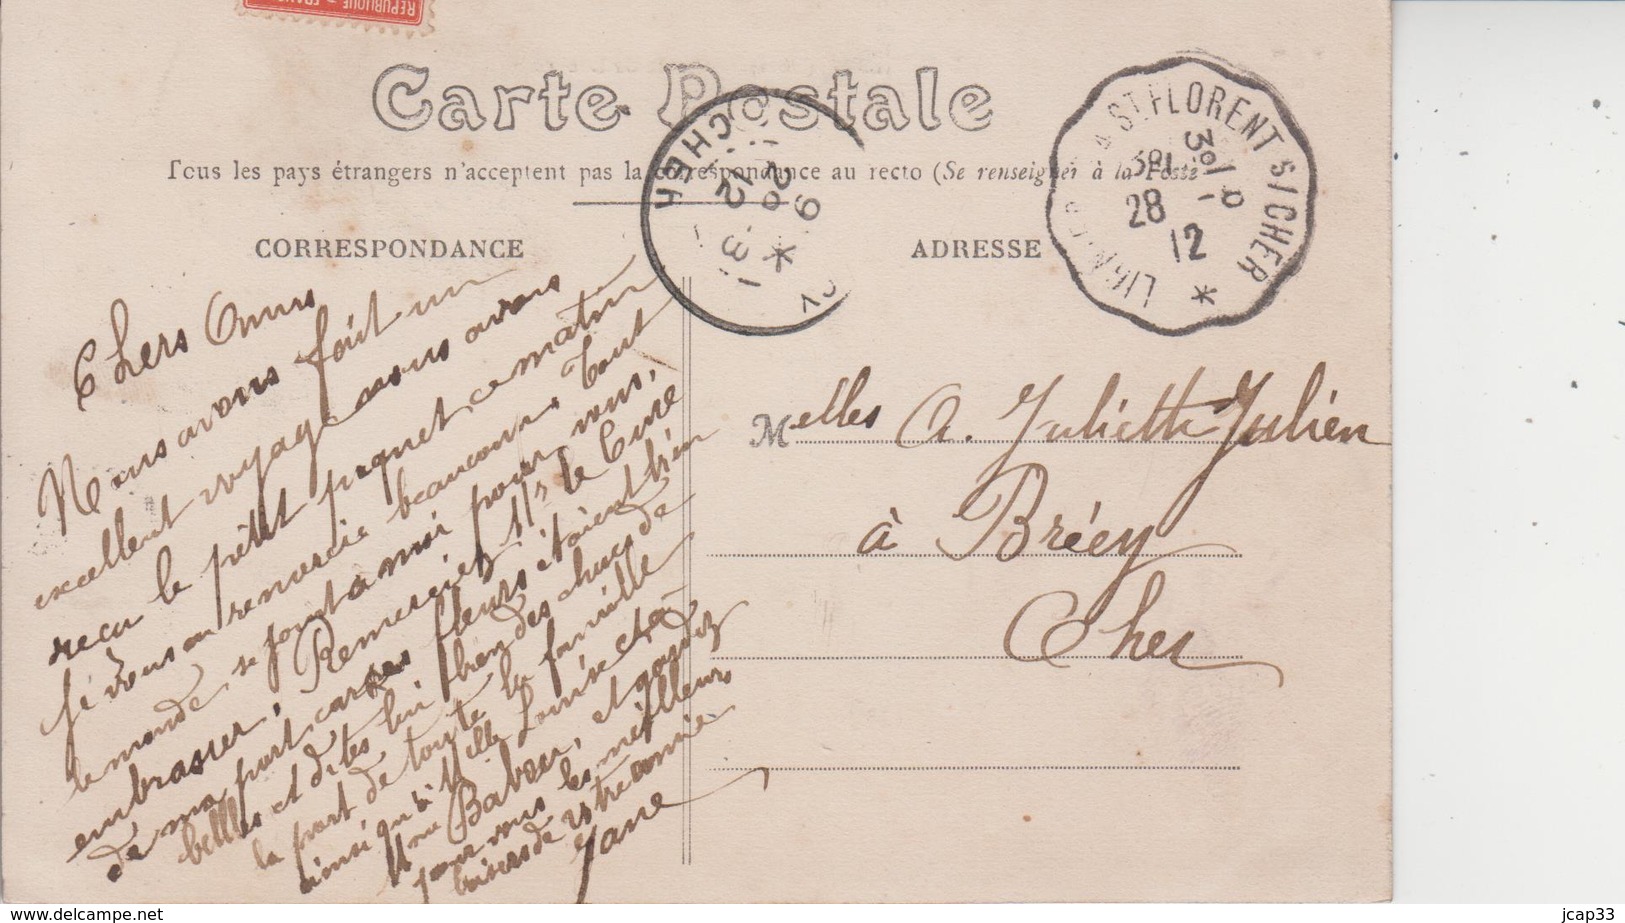 REPUBLIQUE FRAN
Carte Postale
Tous les pays étrangers n'acceptent pas la correspondance au recto (Se renseigner à la Poste
CORRESPONDANCE
ADRESSE
CHER
9
28
12
ST FLORENT S/CHER
28
12
Chers Amis
Nous avons fait un
excellent voyage nous avons
reçu le petit paquet ce matin
je vous en remercie beaucoup. Tout
le monde se joint a moi pour vous
embrasser, Remerciez Mr le Curé
de ma part car ses fleurs étaient bien
belles et dites lui bien des choses de
la part de toute la famille
ainsi qu'à Melle Louise et à
Mme Babeau, et gardez
pour vous les meilleurs
baisers de votre amie
Jane
Melles A. Juliette Julien
à Brécy
Cher
www.delcampe.net
jcap33